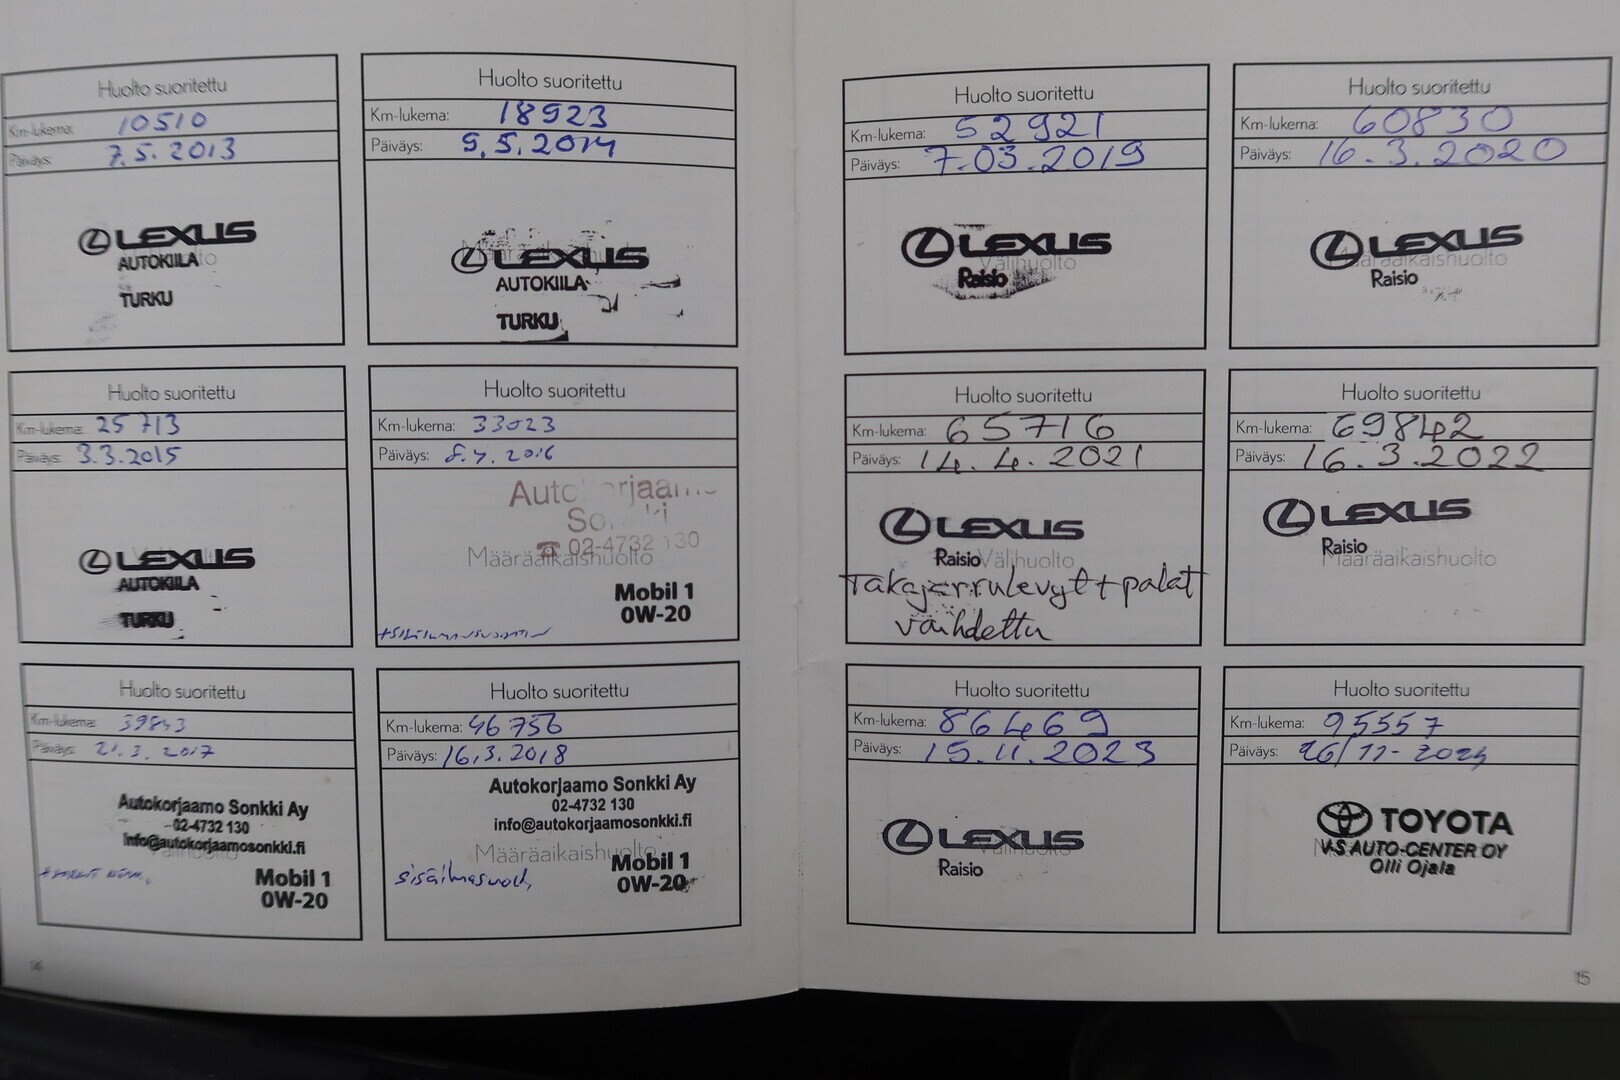 Huolto suoritettu
Km-lukema: 10510
Päiväys: 7.5.2013
LEXUS
AUTOKIILA
TURKU
Huolto suoritettu
Km-lukema: 18923
Päiväys: 5.5.2014
LEXUS
Määräaikaishuolto
AUTOKIILA
TURKU
Huolto suoritettu
Km-lukema: 25713
Päiväys: 3.3.2015
LEXUS
AUTOKIILA
TURKU
Huolto suoritettu
Km-lukema: 33023
Päiväys: 8.4.2016
02-4732 130
Määräaikaishuolto
Mobil 1
0W-20
Huolto suoritettu
Km-lukema: 39843
Päiväys: 21.3.2017
Autokorjaamo Sonkki Ay
02-4732 130
info@autokorjaamosonkki.fi
Mobil 1
0W-20
Huolto suoritettu
Km-lukema: 46756
Päiväys: 16.3.2018
Autokorjaamo Sonkki Ay
02-4732 130
info@autokorjaamosonkki.fi
Määräaikaishuolto
Mobil 1
0W-20
14
Huolto suoritettu
Km-lukema: 52921
Päiväys: 7.03.2019
LEXUS
Välihuolto
Raisio
Huolto suoritettu
Km-lukema: 60830
Päiväys: 16.3.2020
LEXUS
Määräaikaishuolto
Raisio
Huolto suoritettu
Km-lukema: 65716
Päiväys: 14.4.2021
LEXUS
Raisio Välihuolto
Takajarrulevyt + palat
vaihdettu
Huolto suoritettu
Km-lukema: 69842
Päiväys: 16.3.2022
LEXUS
Raisio
Määräaikaishuolto
Huolto suoritettu
Km-lukema: 86469
Päiväys: 15.11.2023
LEXUS
Raisio
Huolto suoritettu
Km-lukema: 95557
Päiväys: 26/11-2024
TOYOTA
V-S AUTO-CENTER OY
Olli Ojala
15